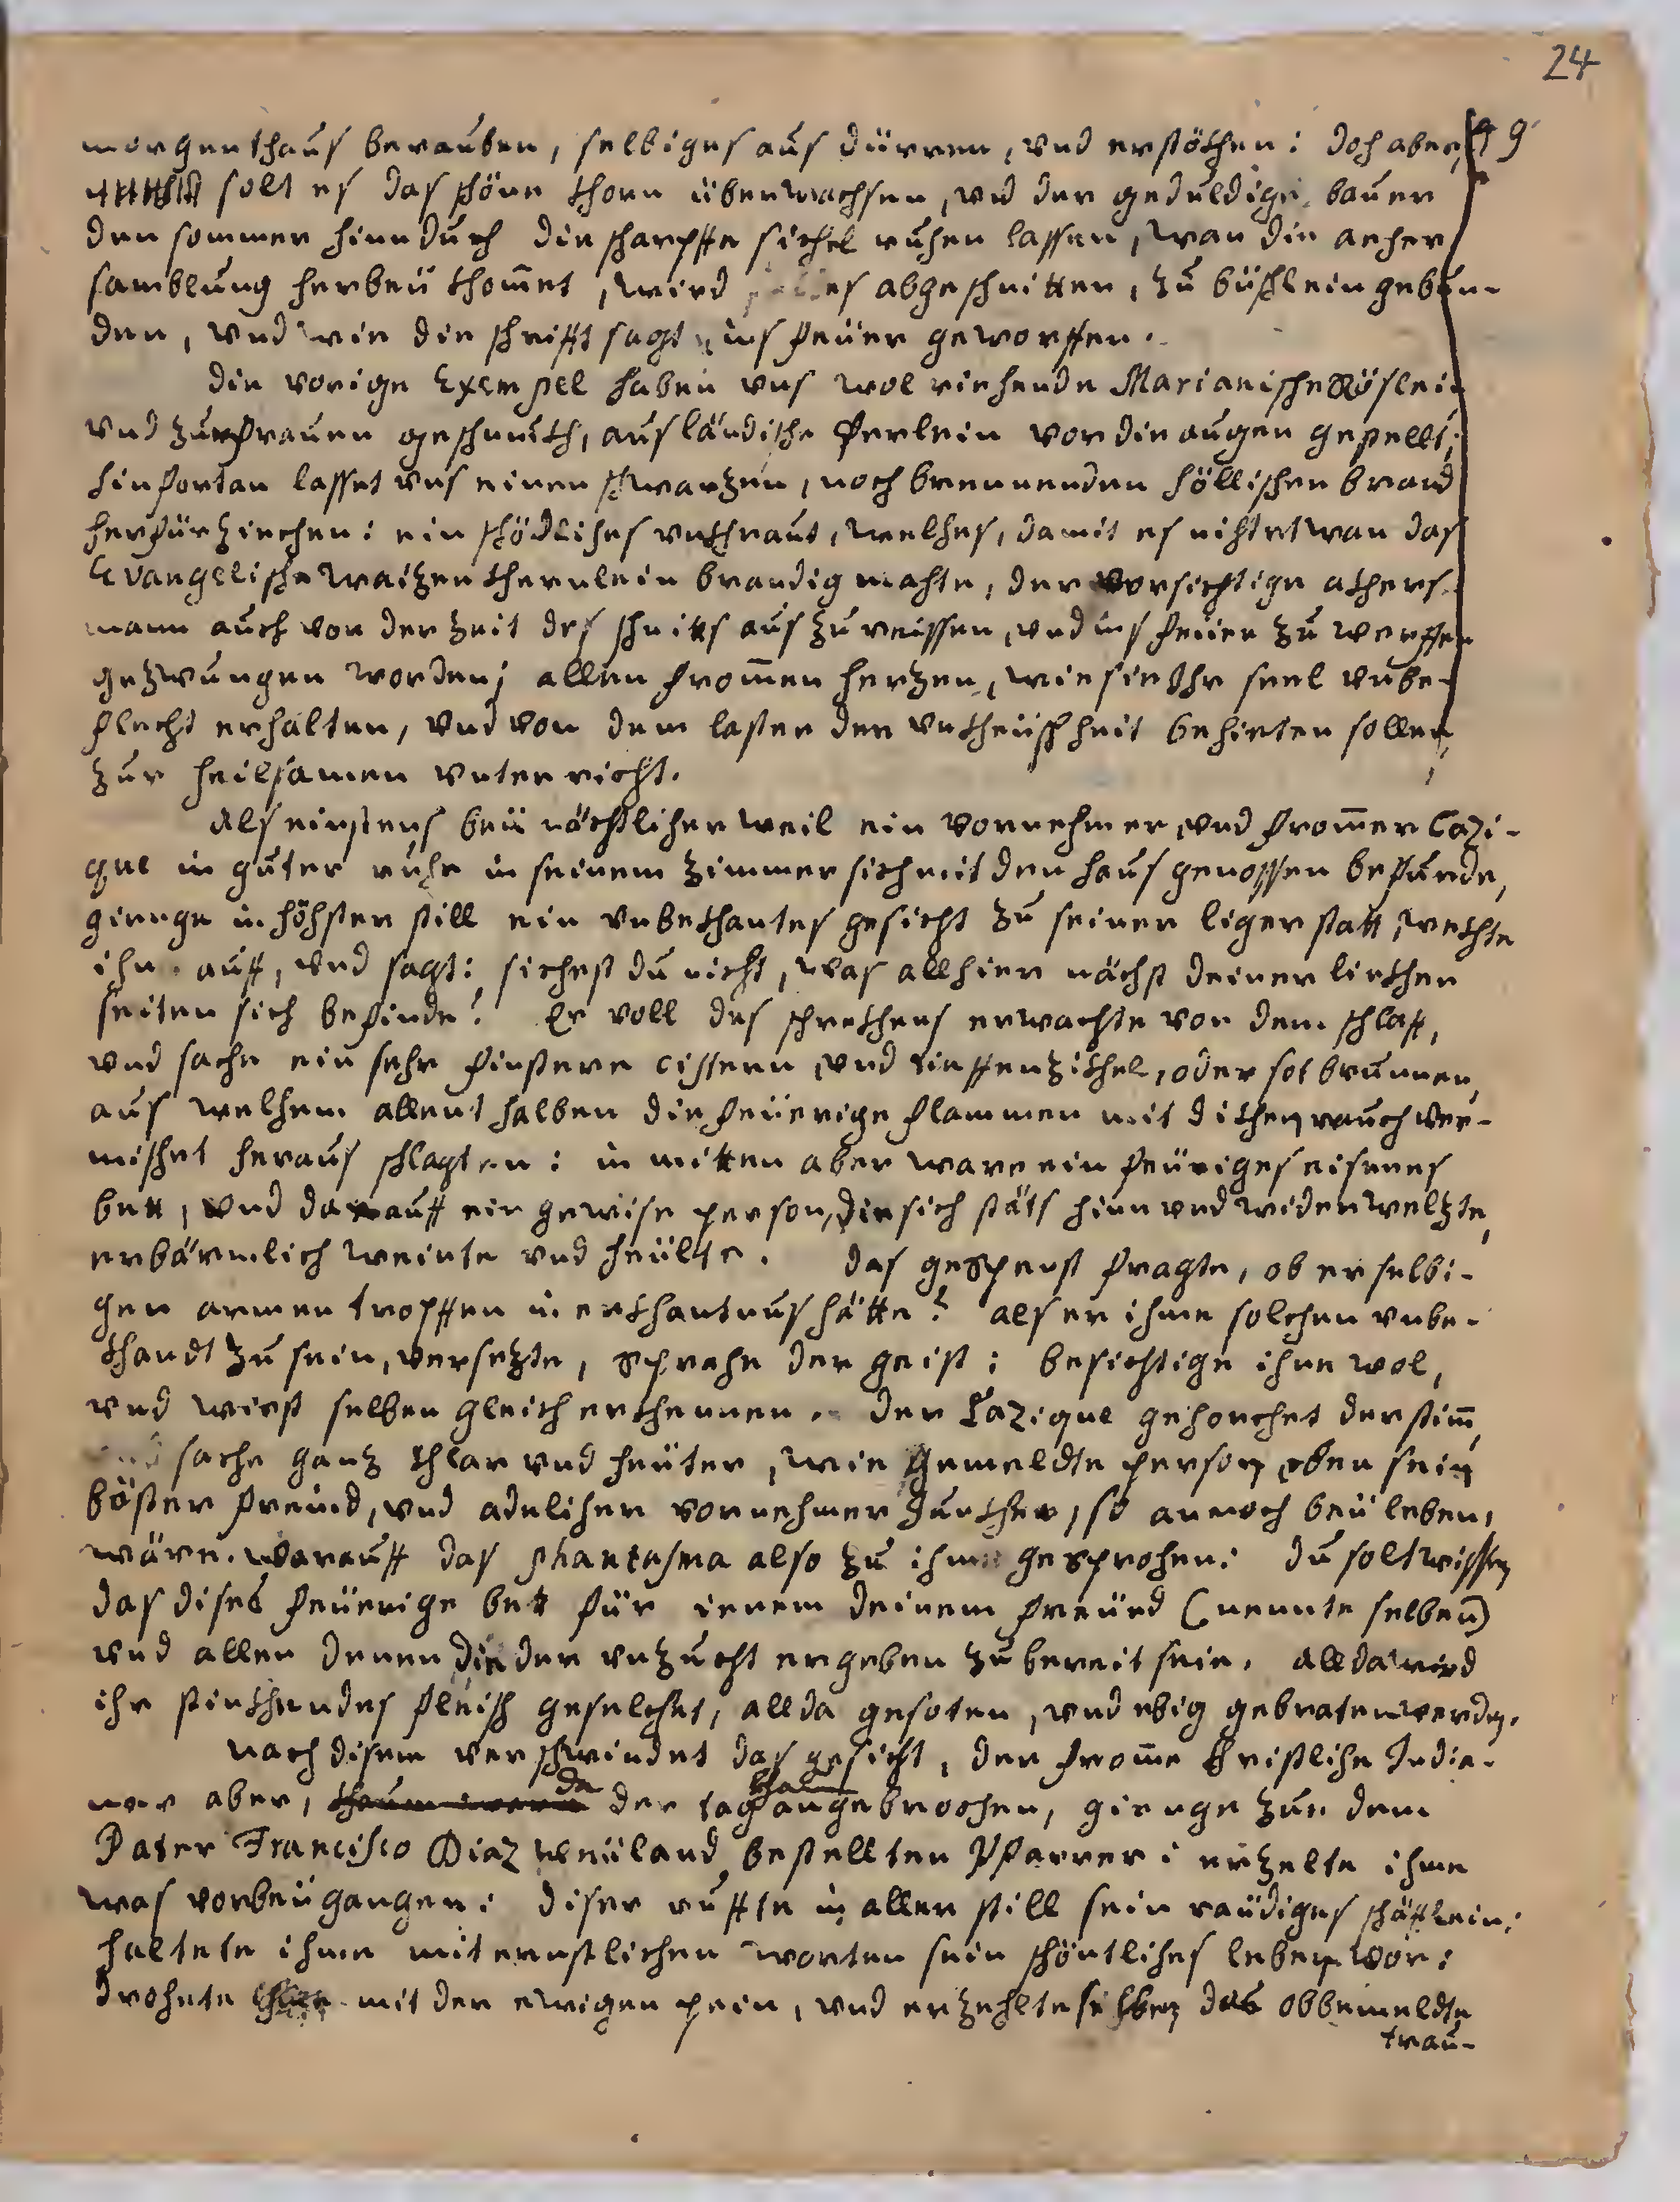 24
99
morgenthaus berauben, selbiges aus dürren, vnd erstökhen: doch aber,
solt es das schöne khorn überwachsen, vnd der geduldige bauer
den sommer hinnduch die scharpffe sichel ruhen lassen, wan die aeher
samblung herbeÿ khom̄et, wird es abgeschnitten, zu büschlein gebun-
den, vnd wie die schrifft sagt ins feüer geworffen.
Die vorige Exempel haben vns wol riehende Marianische Röslein
vnd zur frauen geschmukh, ausländische perlein vor die augen gestellt;
hinfortan lasset vns einen schwarzen, noch brennenden höllischen brand
herfürziechen: ein schödliches vnkhraut, welhes, damit es niht etwan das
Evangelische waitzen khernlein brandig mahte, der vorsichtige akhers-
mann auch vor der zeit des schnitts aus zu reissen, vnd ins feüer zu werffen
gezwungen worden; allen from̄en herzen, wie sie Ihr seel vnbe-
flecht erhalten, vnd von dem laster der vnkheüschheit behieten sollen,
zur heilsamen vnterricht.
Als einstens beÿ nächtlicher weil ein vornehmer, vnd from̄er Cazi-
que in guter ruhe in seinem zimmer sich mit den hausgenossen befunde,
gienge in höhster still ein vnbekhantes gesicht zu seiner ligerstatt, wekhte
ihn auff, vnd sagt: sichest du nicht, was allhier nächst deiner linkhen
seiten sich befinde? Er voll des schrekhens erwachte von dem schlaff,
vnd sache ein sehr finstere cistern, vnd tieffen zikhel, oder sot brunnen,
aus welhem allenthalben die feüerige flammen mit dikhen rauch ver-
mischet heraus schlagten: in mitten aber ware ein feüriges eisenes
bett, vnd darauff ein gewise person, die sich stäts hinn vnd wider welzte,
erbärmlich weinte vnd heülte. Das gespenst fragte, ob er selbi-
gen armen tropffen in erkhantnus hätte? als er ihme solchen vnbe-
khandt zu sein, versetzte, sprache der geist: besichtige ihne wol,
vnd wirst selben gleich erkhennen. Der Cazique gehorchet der stim̄,
vnd sache ganz khlar vnd heüter, wie gemeldte person eben sein
böster freund, vnd adelicher vornehmer Junkher, so annoch beÿ leben,
wäre. Worauff das phantasma also zu ihme gesprohen: Du solt wissen,
das dises feüerige bett für ienem deinem freünd (nennte selben)
vnd allen denen die der vnzucht ergeben zubereit seie. allda wird
ihr stinkhendes fleisch geselchet, allda gesoten, vnd ebig gebraten werden.
Nach disem verschwindet das gesicht, der from̄e Christliche India-
ner aber, da der tag khaum angebrochen, gienge zur dem
Pater Francisco Diaz weiland bestellten Pfarrer: erzelte ihme
was vorbeÿgangen: diser ruffte in aller still sein raüdiges schäfflein:
haltete ihme mit ernstlichen worten sein schöntliches leben vor:
drohete mit der ewigen pein, vnd erzehlte selben das obbemeldte
trau-